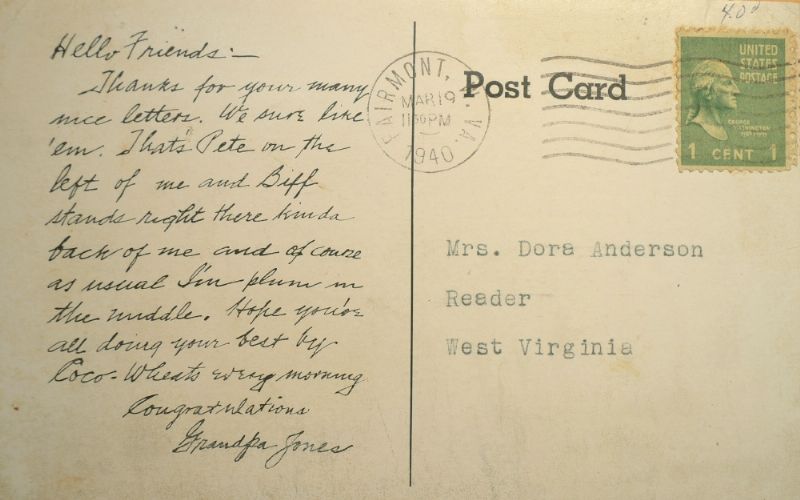 Hello Friends:—
Thanks for your many
nice letters. We sure like
'em. Thats Pete on the
left of me and Biff
stands right there kinda
back of me and of course
as usual I'm plum in
the middle. Hope you're
all doing your best by
Coco-Wheats every morning
Congratulations
Grandpa Jones
4.00
FAIRMONT, W. VA.
MAR 19
11 30 PM
1940
Post Card
UNITED
STATES
POSTAGE
GEORGE
WASHINGTON
1 CENT 1
Mrs. Dora Anderson
Reader
West Virginia